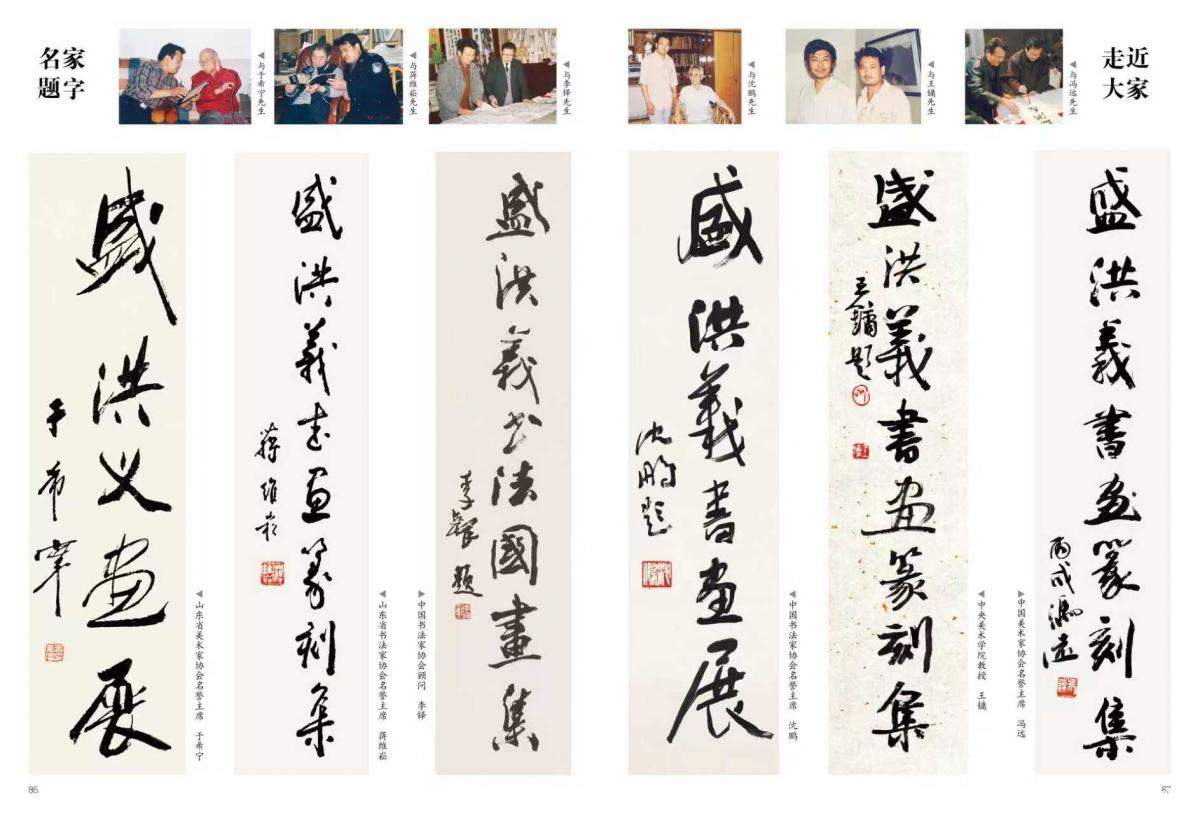 名家
题字
◀与于希宁先生
◀与蒋维崧先生
◀与李铎先生
◀与沈鹏先生
◀与王镛先生
◀与冯远先生
走近
大家
盛洪义画展
于希宁
◀山东省美术家协会名誉主席 于希宁
盛洪義书画篆刻集
蒋维崧
◀山东省书法家协会名誉主席 蒋维崧
▶中国书法家协会顾问 李铎
盛洪義书法國畫集
李铎題
盛洪義書画展
沈鹏题
◀中国书法家协会名誉主席 沈鹏
盛洪義書画篆刻集
王鏞题
◀中央美术学院教授 王镛
▶中国美术家协会名誉主席 冯远
盛洪義書画篆刻集
丙戌冯远
86
87